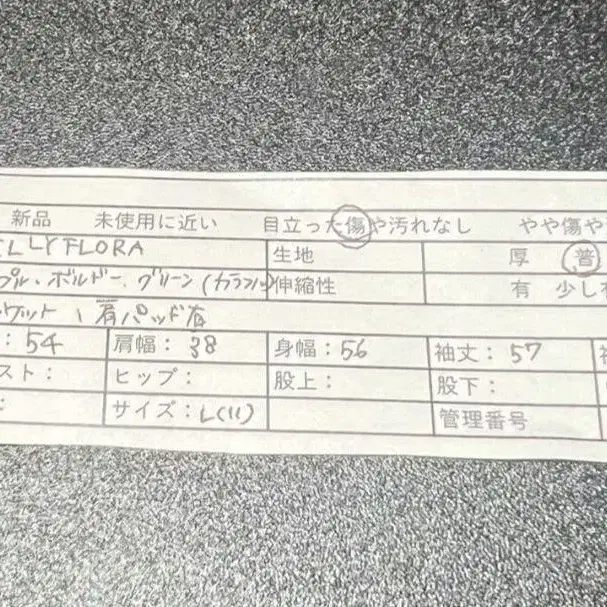 新品 未使用に近い 目立った傷や汚れなし やや傷や
LLYFLORA 生地 厚 普
プル・ボルドー、グリーン(カラフル) 伸縮性 有 少し
ケット、肩パッド有
: 54 肩幅: 38 身幅: 56 袖丈: 57
スト: ヒップ: 股上: 股下:
: サイズ: L(11) 管理番号